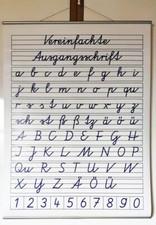 Vereinfachte
Ausgangsschrift
a b c d e f g h i
j k l m n o p qu
r s t u v w x y z
sch st ß tz ä ö ü
A B C D E F G H
I J K L M N O P
Qu R S T U V W
X Y Z Ä Ö Ü
1 2 3 4 5 6 7 8 9 0